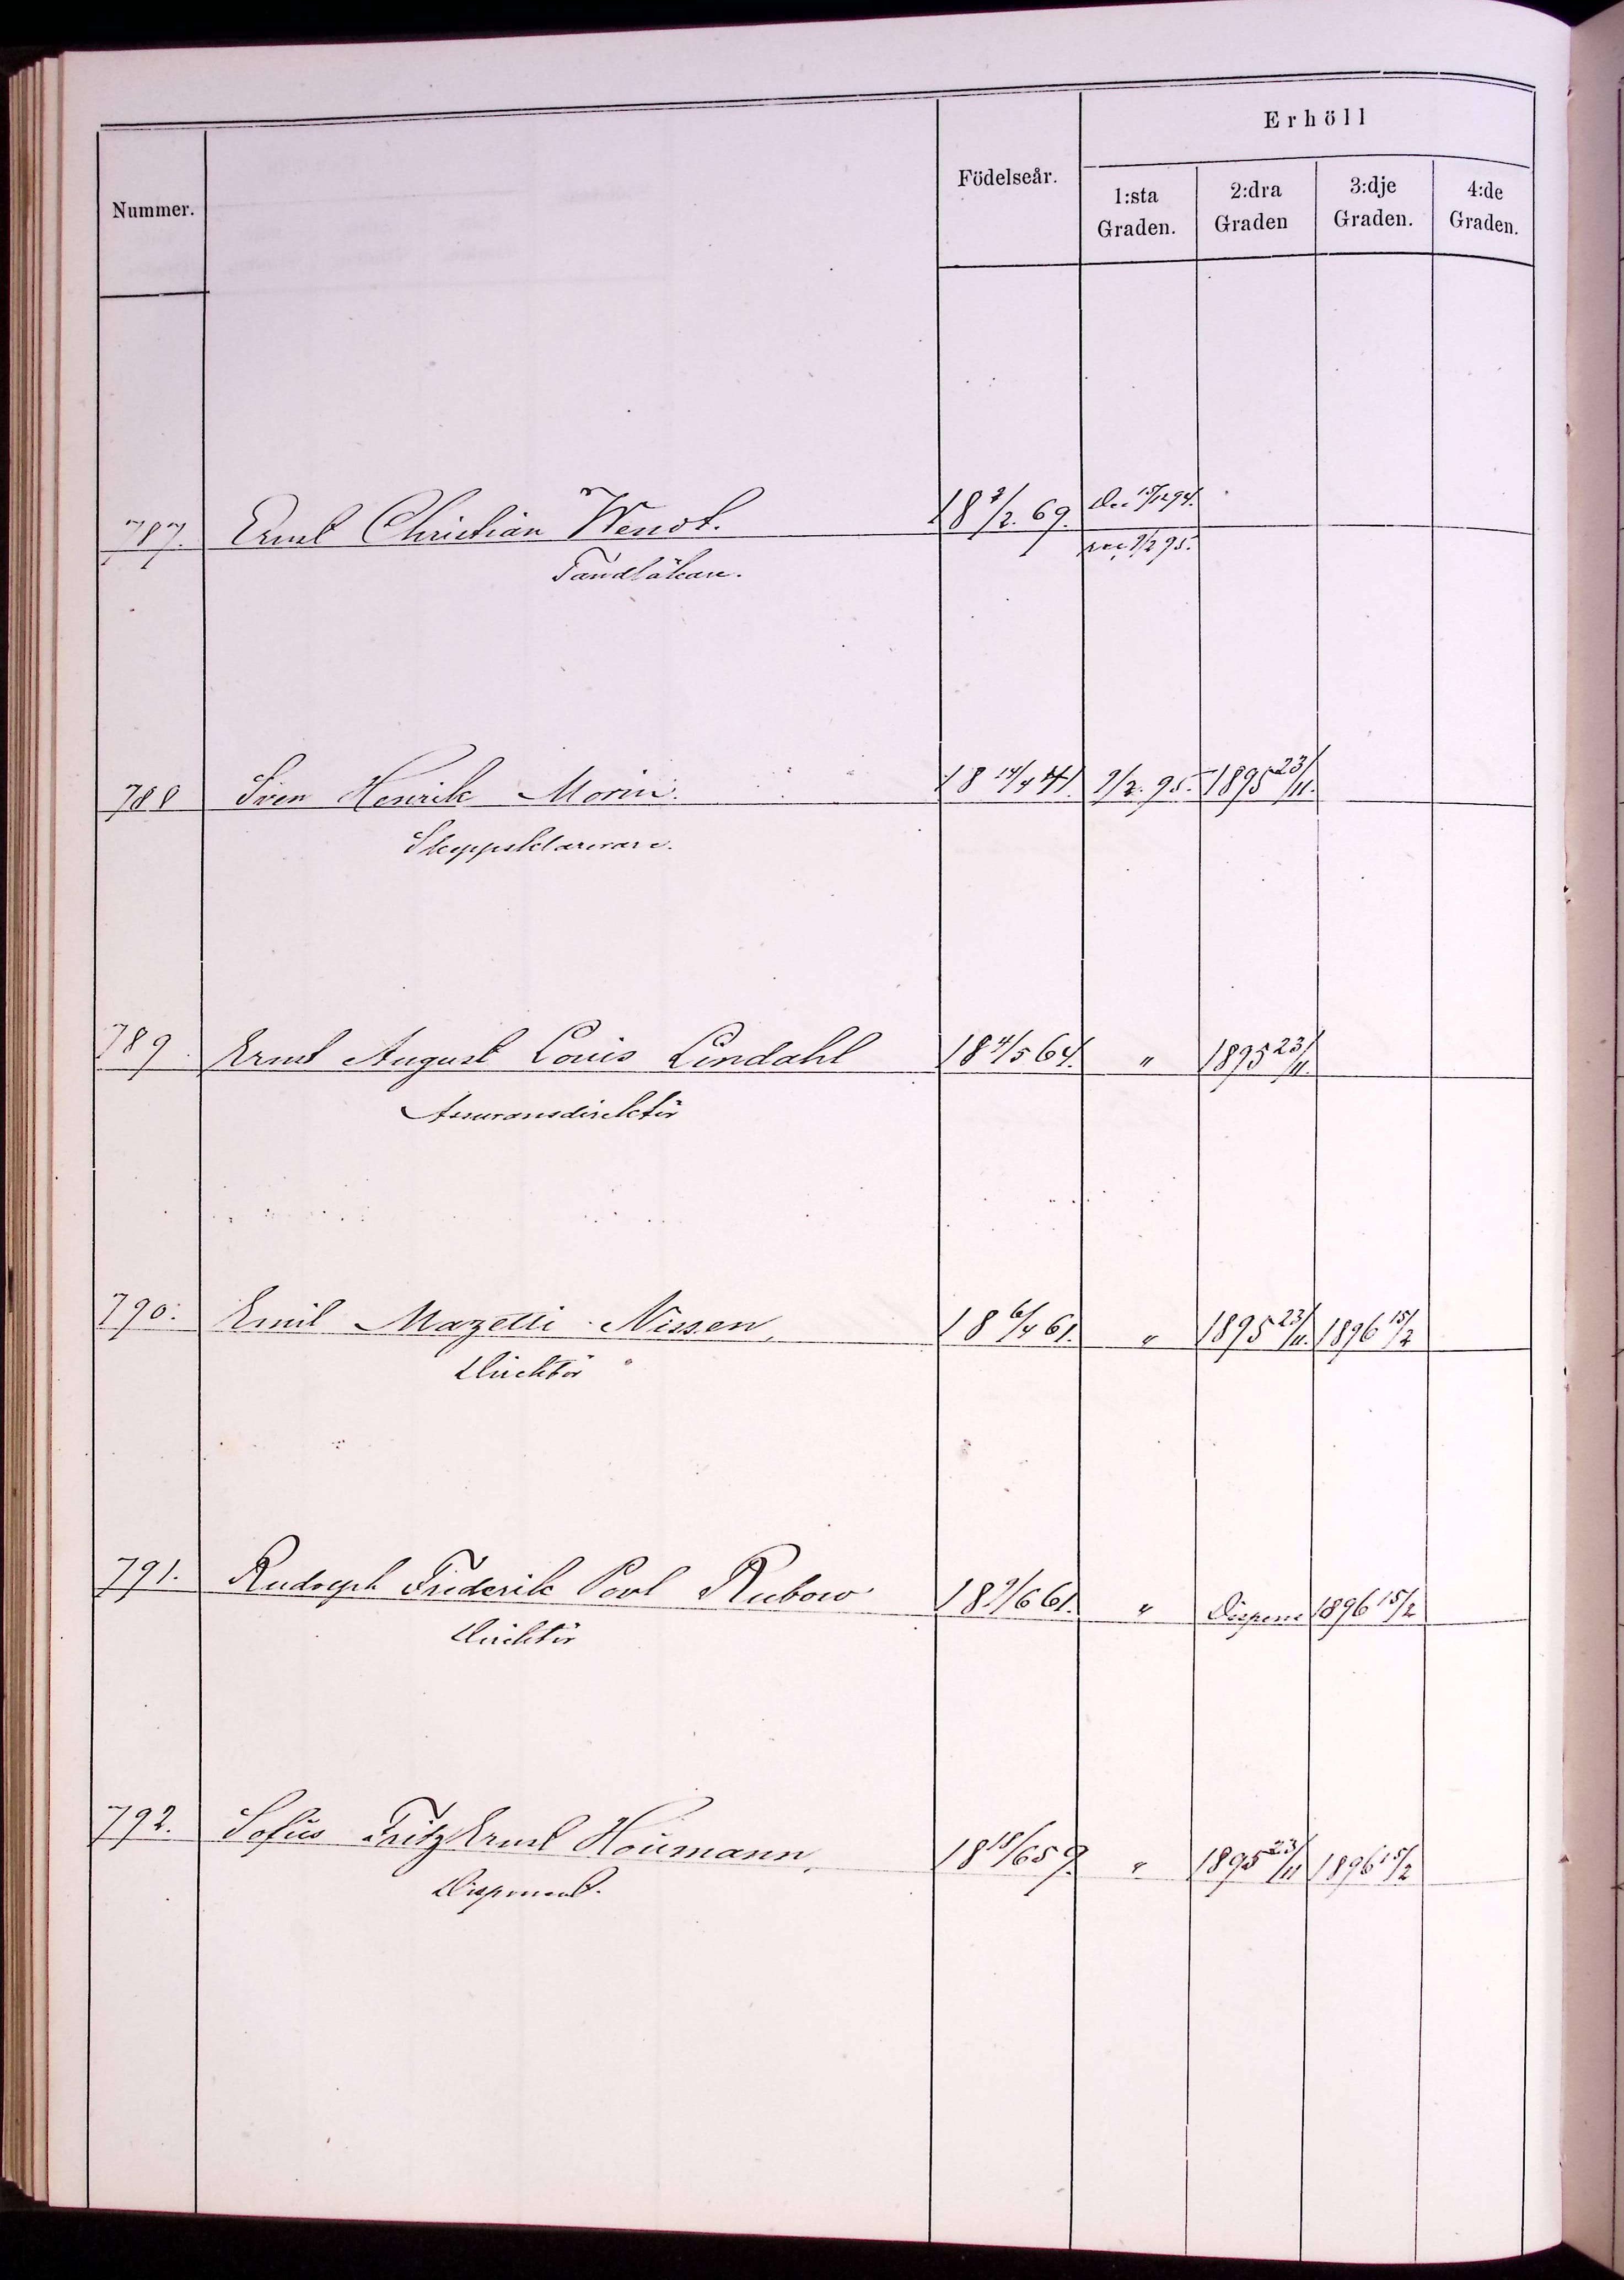 Erhöll
Nummer. Födelseår. 1:sta Graden. 2:dra Graden 3:dje Graden. 4:de Graden.
787. Ernst Christian Wendt. 18 2/2. 69. Dec 15/12 94.
rec. 9/2 95.
Tandläkare.
788 Sven Henrik Morin. 18 14/4 41. 9/2. 95. 1895 23/11.
Skeppsklarerare.
789. Ernst August Louis Lindahl 18 4/5 64. " 1895 23/11.
Assuransdirektör
790. Emil Mazetti Nissen, 18 6/4 61. " 1895 23/11. 1896 15/2
Direktör
791. Rudolph Frederik Povl Rubow 18 9/6 61. " Dispens 1896 15/2
Direktör
792. Sofus Fritz Ernst Houmann, 18 18/6 59. " 1895 23/11 1896 15/2
Disponent.